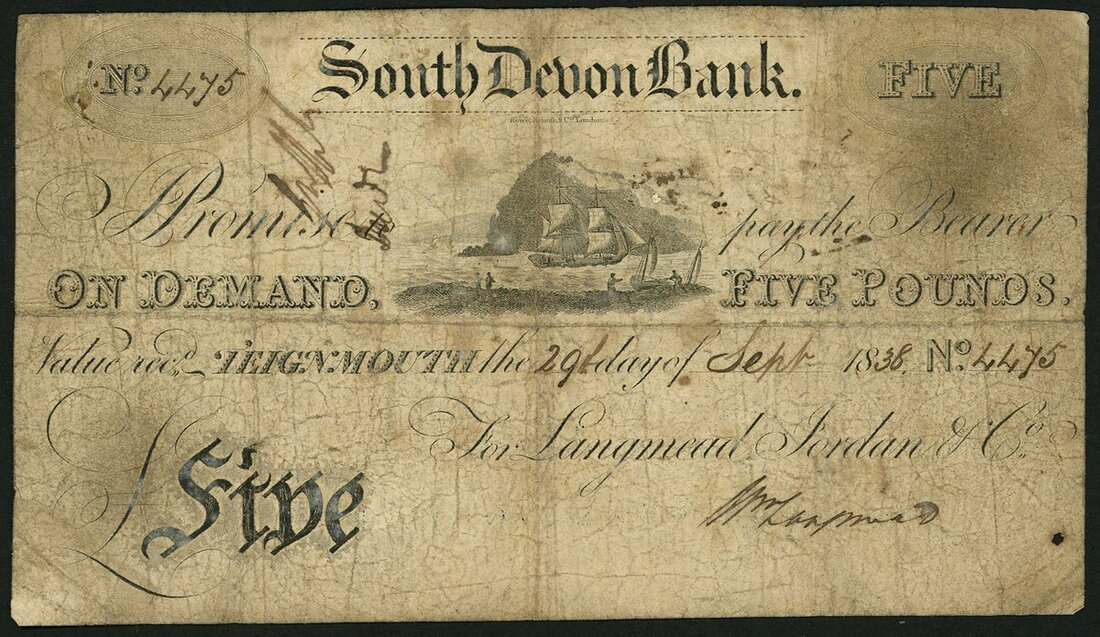 No. 4475
South Devon Bank.
FIVE
I Promise
pay the Bearer
ON DEMAND,
FIVE POUNDS.
Value recd, TEIGNMOUTH the 29th day of Sept 1838, No. 4475
For Langmead Jordan & Co.
£ Five
Wm Langmead